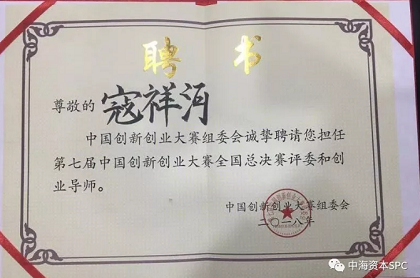 聘书
尊敬的寇祥河
中国创新创业大赛组委会诚挚聘请您担任
第七届中国创新创业大赛全国总决赛评委和创
业导师。
中国创新创业大赛组委会
二〇一八年
中海资本SPC